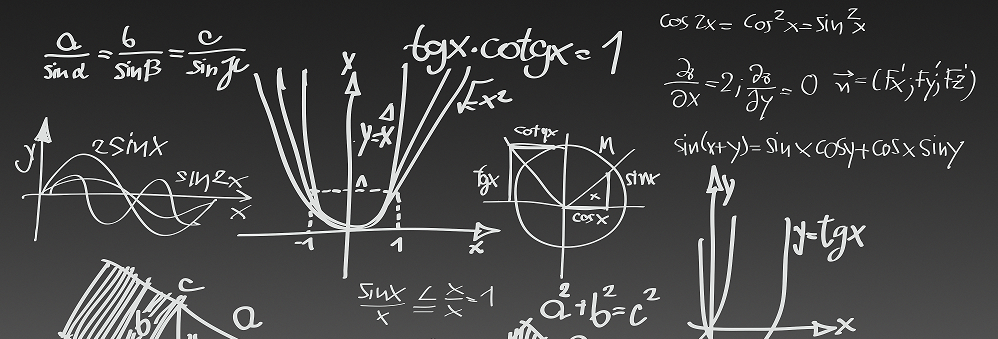 a/sin α = b/sin β = c/sin γ
tgx·cotgx=1
cos 2x = cos²x = sin²x
∂z/∂x = 2; ∂z/∂y = 0 n⃗ = (Fx'; Fy'; Fz')
sin(x+y) = sin x cos y + cos x sin y
y
2sinx
sin2x
x
x
x²
y=x
1
-1
1
x
cotgx
M
tgx
sinx
x
cosx
y
y=tgx
x
sinx/x ≤ x/x = 1
a²+b²=c²
c
b
a